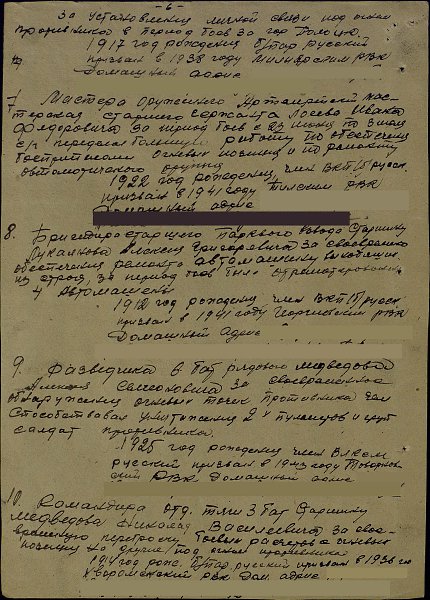 - 6 -
за установления личной связи под огнем
противника в период боев за гор Полоцк.
1917 год рождения б/пар русский
призван в 1938 году РВК
Домашный адрес
7. Мастера оружейного Артиллерийской мас-
терской старшего сержанта Лосева Ивана
Федоровича за период боев с 23 июня по 3 июля
с/г работу по обеспечению
боеприпасами огневых позиции и по ремонту
автоматического оружия
1922 год рождению, член ВКП/б/ русск.
призван в 1941 году Тулским РВК
Домашный адрес
8. Бригадира старшего паркового взвода Старшину
Лукаянова Алексея Григоровича за своевременно
обеспечения ремонта автомашин выходивших
из строя, за период боев было отремонтировано
4 Автомашены
1912 год рождению член ВКП/б/ русск
призван в 1941 году Георгиевским РВК
Домашный адрес
9. Разведчика 8 бат рядового Медведова
Алексея Самсоновича за своевременное
обнаружению огневых точек противника чем
способствовал уничтожению 2х пулеметов и груп
солдат противника.
1925 год рождению член ВЛКСМ
русский призван в 1943 году
ский РВК Домашный адрес
10. Командира отд. тяги 3 бат Старшину
Медведова Николая Василевича за свое-
временную переброску боевых расчетов с огневых
позиции на другие под огнем противника
рож. б/пар. русский призван в 1936 го
РВК Дом. адрес...